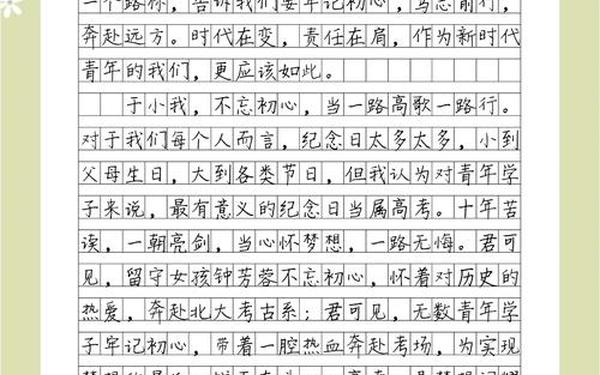 一个路标，告诉我们要牢记初心，笃志前行，
奔赴远方。时代在变，责任在肩，作为新时代
青年的我们，更应该如此。
于小我，不忘初心，当一路高歌一路行。
对于我们每个人而言，纪念日太多太多，小到
父母生日，大到各类节日，但我认为对青年学
子来说，最有意义的纪念日当属高考。十年苦
读，一朝亮剑，当心怀梦想，一路无悔。君可
见，留守女孩钟芳蓉不忘初心，怀着对历史的
热爱，奔赴北大考古系；君可见，无数青年学
子牢记初心，带着一腔热血奔赴考场，为实现